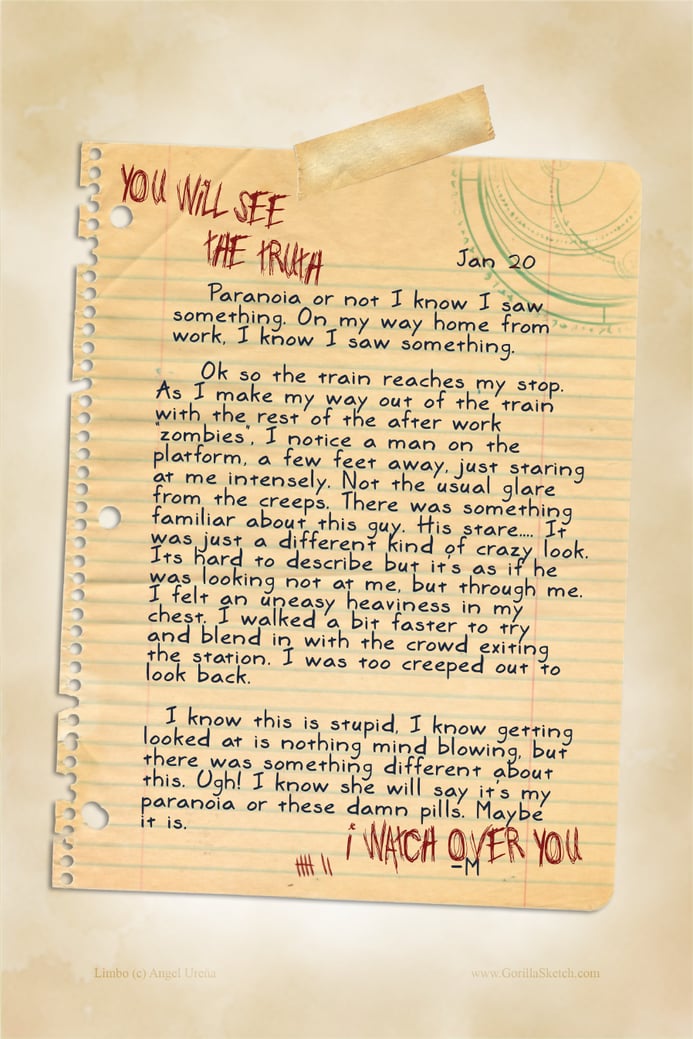 YOU WiLL SEE
THE TRUTH
Jan 20
Paranoia or not I know I saw
something. On my way home from
work, I know I saw something.
Ok so the train reaches my stop.
As I make my way out of the train
with the rest of the after work
"zombies", I notice a man on the
platform, a few feet away, just staring
at me intensely. Not the usual glare
from the creeps. There was something
familiar about this guy. His stare.... It
was just a different kind of crazy look.
Its hard to describe but it's as if he
was looking not at me, but through me.
I felt an uneasy heaviness in my
chest. I walked a bit faster to try
and blend in with the crowd exiting
the station. I was too creeped out to
look back.
I know this is stupid, I know getting
looked at is nothing mind blowing, but
there was something different about
this. Ugh! I know she will say it's my
paranoia or these damn pills. Maybe
it is.
i WATCH OVER YOU
-M
Limbo (c) Angel Ureña
www.GorillaSketch.com